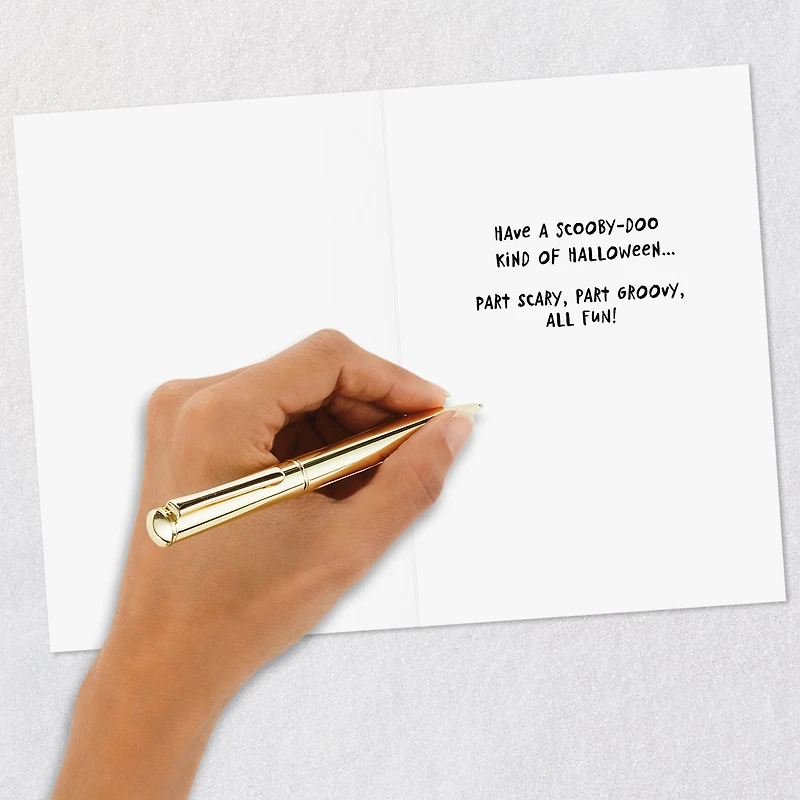 HAVE A SCOOBY-DOO
KIND OF HALLOWEEN...
PART SCARY, PART GROOVY,
ALL FUN!